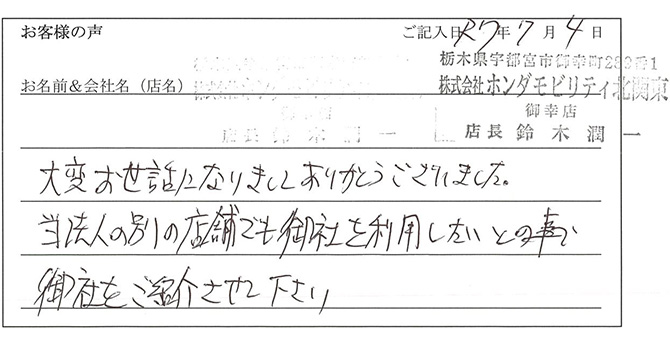 お客様の声
ご記入日 R7年7月4日
栃木県宇都宮市御幸町283番1
お名前＆会社名（店名） 株式会社ホンダモビリティ北関東
御幸店
店長 鈴木潤一
大変お世話になりましてありがとうございました。
当法人の別の店舗でも御社を利用したいとの事で
御社をご紹介させて下さり